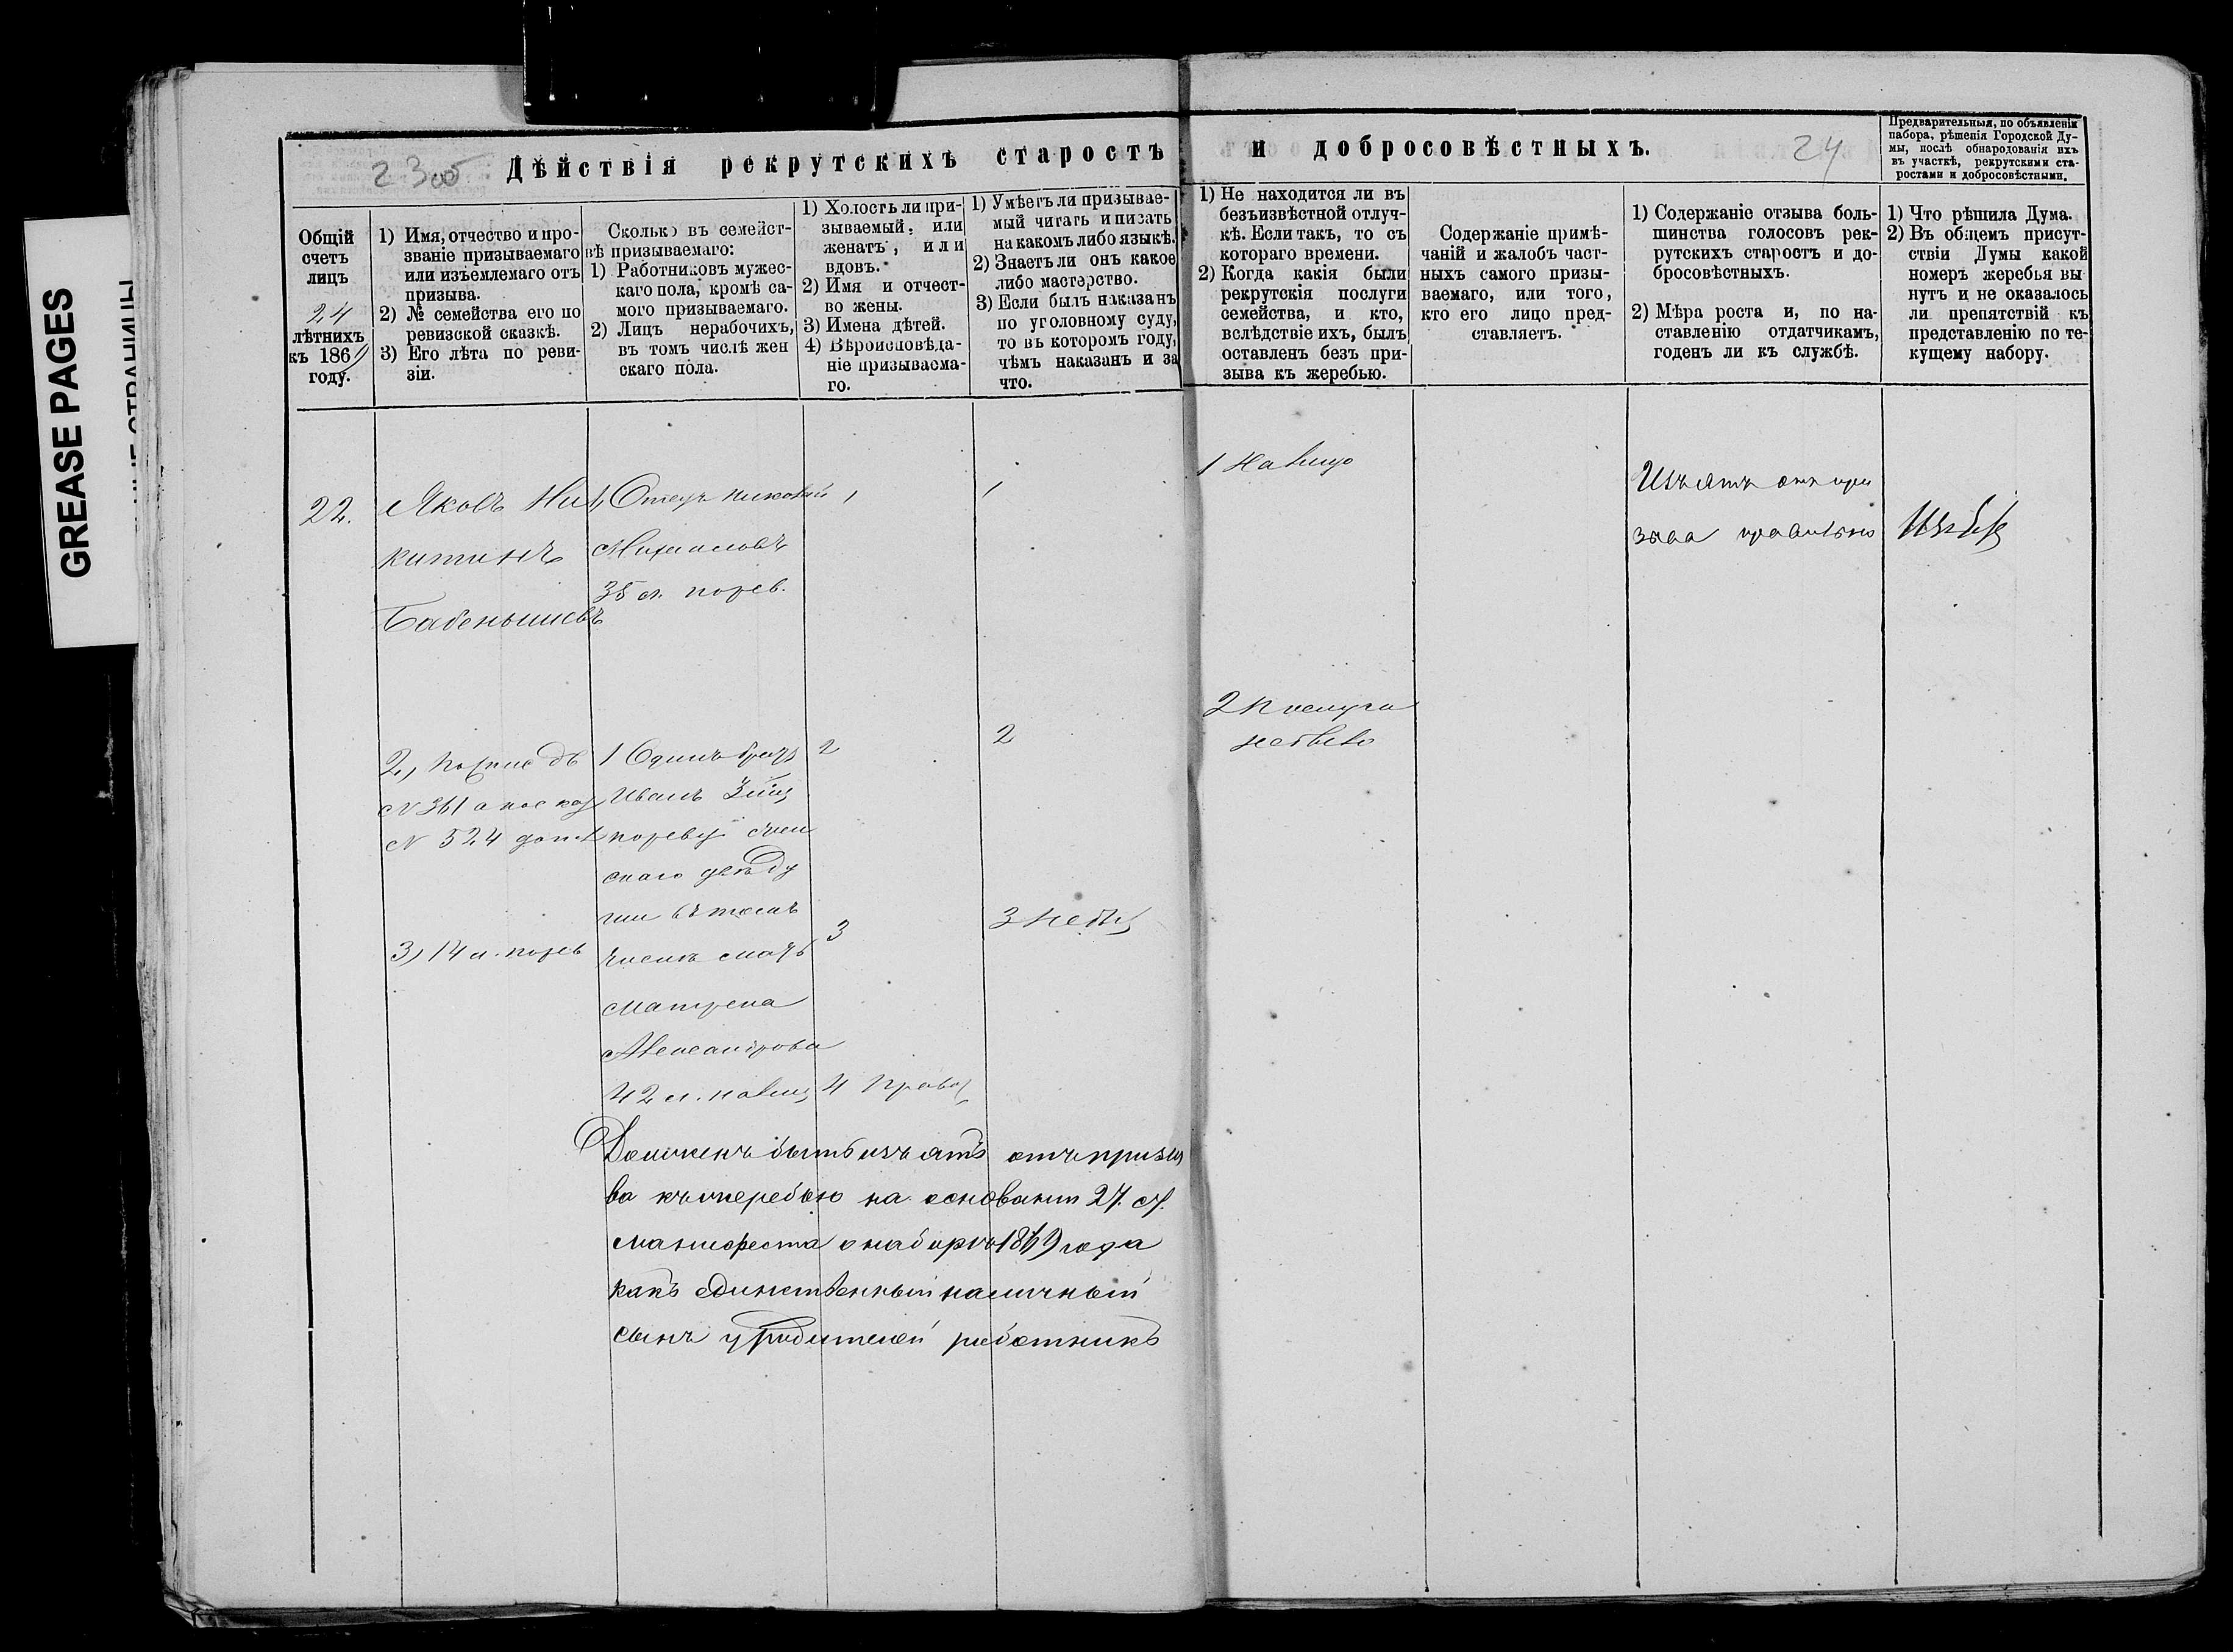 GREASE PAGES
23об
Дѣйствія рекрутскихъ старостъ и добросовѣстныхъ.
24
Предварительныя, по объявленіи
набора, рѣшенія Городской Ду-
мы, послѣ обнародованія ихъ
въ участкѣ, рекрутскими ста-
ростами и добросовѣстными.
Общій
счетъ
лицъ
24
лѣтнихъ
къ 1869
году.
1) Имя, отчество и про-
званіе призываемаго
или изъемлемаго отъ
призыва.
2) № семейства его по
ревизской сказкѣ.
3) Его лѣта по реви-
зіи.
Сколько въ семейст-
вѣ призываемаго:
1) Работниковъ мужес-
каго пола, кромѣ са-
мого призываемаго.
2) Лицъ нерабочихъ,
въ томъ числѣ жен
скаго пола.
1) Холостъ ли при-
зываемый, или
женатъ, или
вдовъ.
2) Имя и отчест-
во жены.
3) Имена дѣтей.
4) Вѣроисповѣда-
ніе призываема-
го.
1) Умѣетъ ли призывае-
мый читать и писать
на какомъ либо языкѣ.
2) Знаетъ ли онъ какое
либо мастерство.
3) Если былъ наказанъ
по уголовному суду,
то въ которомъ году,
чѣмъ наказанъ и за
что.
1) Не находится ли въ
безъизвѣстной отлуч-
кѣ. Если так, то съ
котораго времени.
2) Когда какія были
рекрутскія послуги
семейства, и кто,
вслѣдствіе ихъ, былъ
оставленъ безъ при-
зыва къ жеребью.
Содержаніе примѣ-
чаній и жалобъ част-
ныхъ самого призы-
ваемаго, или того,
кто его лицо пред-
ставляетъ.
1) Содержаніе отзыва боль-
шинства голосовъ рек-
рутскихъ старостъ и до-
бросовѣстныхъ.
2) Мѣра роста и, по на-
ставленію отдатчикамъ,
годенъ ли къ службѣ.
1) Что рѣшила Дума.
2) Въ общемъ присут-
ствіи Думы какой
номеръ жеребья вы
нутъ и не оказалось
ли препятствій къ
представленію по те-
кущему набору.
22.
Яковъ Ни
китинъ
Бабенышевъ
2,
N 361
N 524
3) 14 л. по рев
1, Отецъ
Михаиловъ
35 л. по рев.
1 Одинъ братъ
Иванъ
числѣ мать
Матрена
Александрова
42 л. на лиц
1
2
3
4 Правос
1
2
3 Небы
1 На лицо
2 Послуга
не было
Изъятъ отъ при
зыва правильно
Долженъ быть изъятъ отъ призы
ва къ жеребью на основаніи 27. ст.
манифеста о наборѣ 1869 года
какъ единственный наличный
сынъ у родителей работникъ